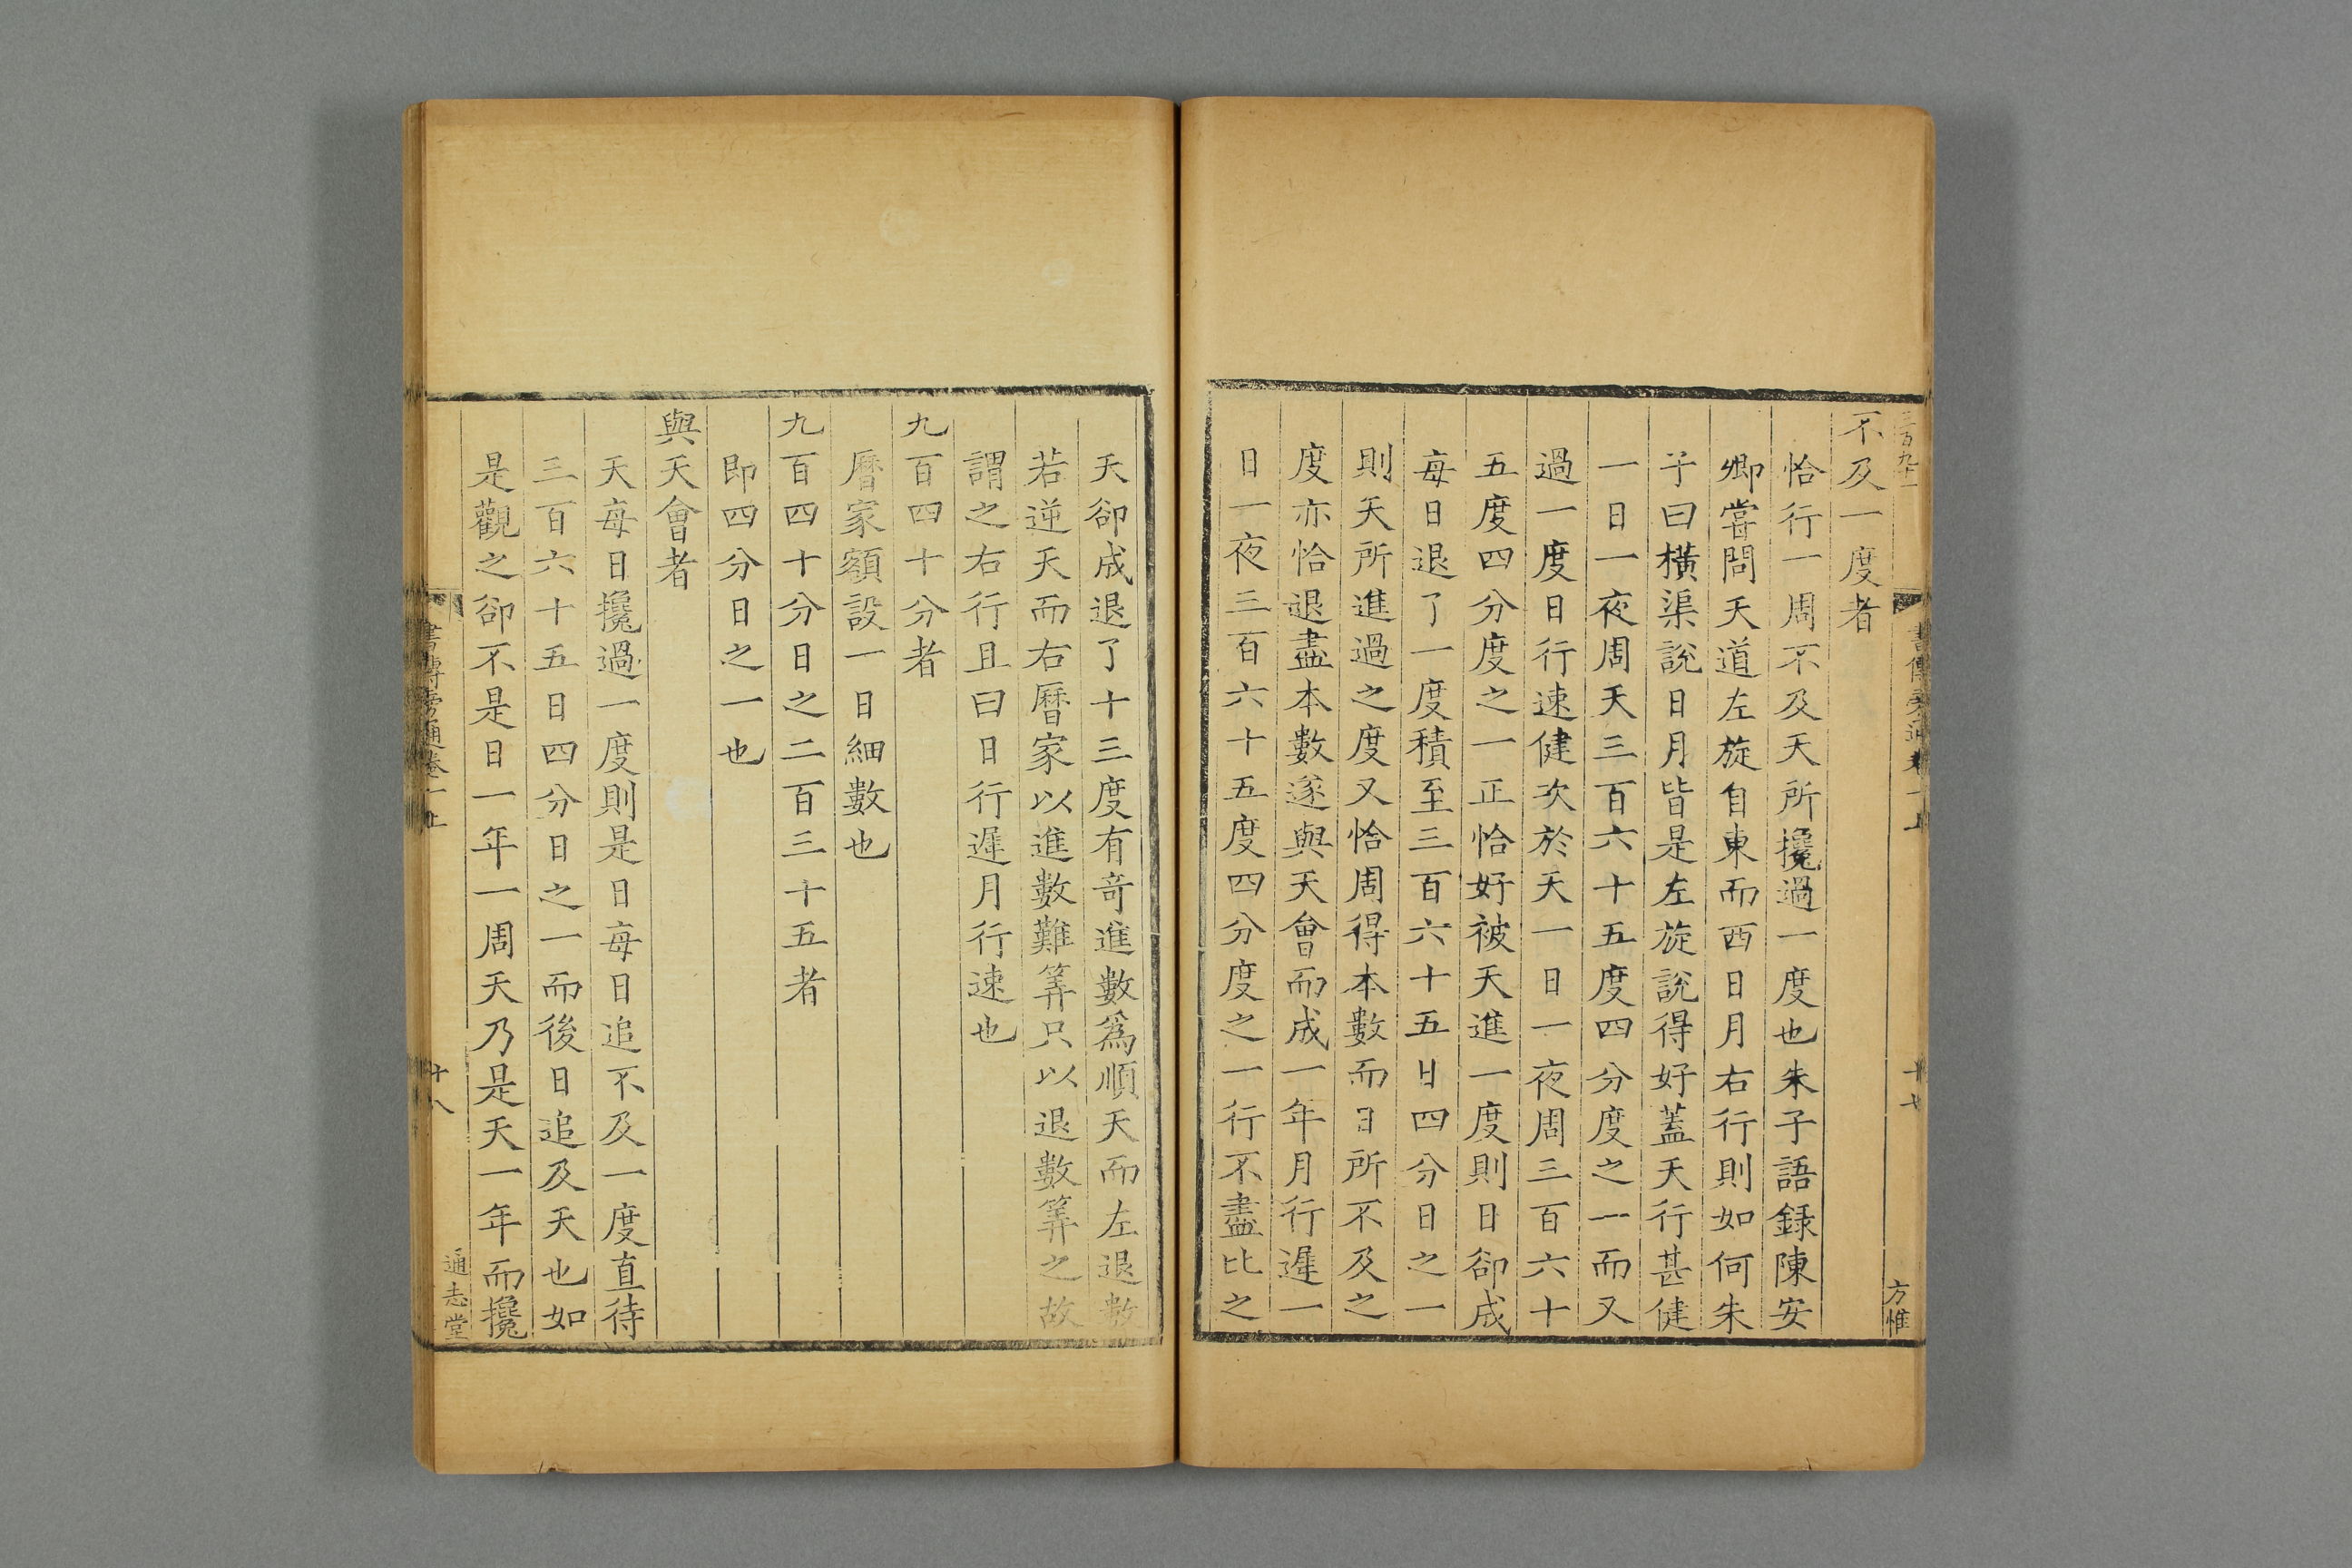 不及一度者
恰行一周不及天所攙過一度也朱子語録陳安
卿嘗問天道左旋自東而西日月右行則如何朱
子曰橫渠說日月皆是左旋說得好蓋天行甚健
一日一夜周天三百六十五度四分度之一而又
過一度日行速健次於天一日一夜周三百六十
五度四分度之一正恰好被天進一度則日卻成
每日退了一度積至三百六十五日四分日之一
則天所進過之度又恰周得本數而日所不及之
度亦恰退盡本數遂與天會而成一年月行遲一
日一夜三百六十五度四分度之一行不盡比之
方惟
天卻成退了十三度有奇進數爲順天而左退數
若逆天而右曆家以進數難筭只以退數筭之故
謂之右行且曰日行遲月行速也
九百四十分者
曆家額設一日細數也
九百四十分日之二百三十五者
即四分日之一也
與天會者
天每日攙過一度則是日每日追不及一度直待
三百六十五日四分日之一而後日追及天也如
是觀之卻不是日一年一周天乃是天一年而攙
書傳旁通卷一上
十八
通志堂